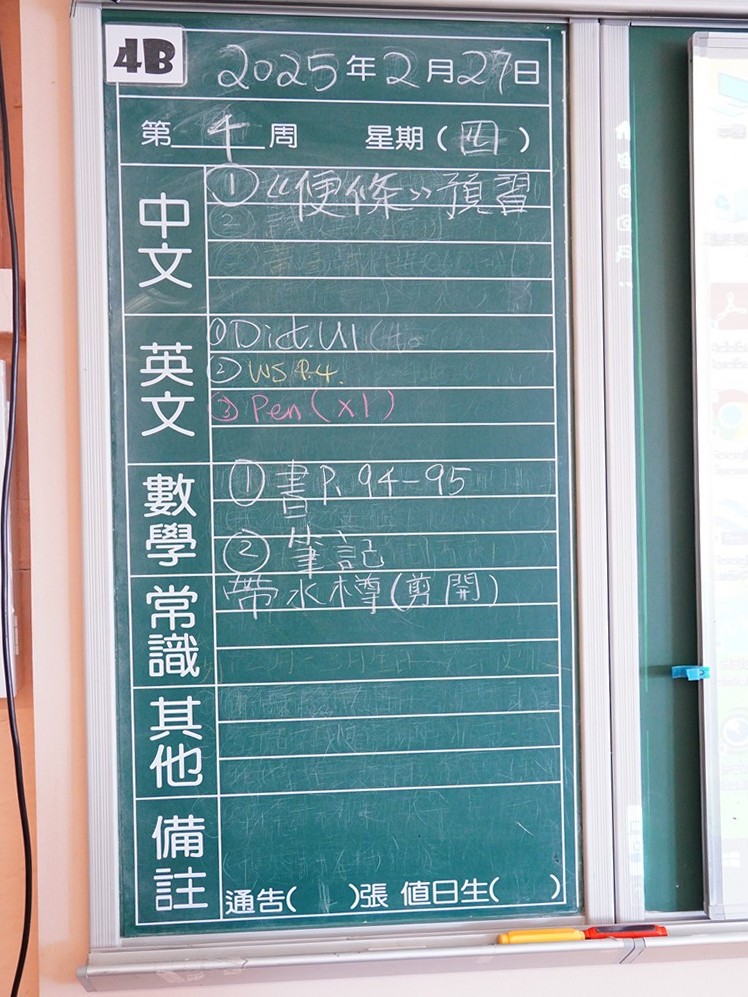 4B
2025年2月27日
第 4 周 星期(四)
中文
① 《便條》預習
英文
① Dict. U1
② WS P.4.
③ Pen (x1)
數學
① 書 P. 94-95
② 筆記
常識
帶水樽(剪開)
其他
備註
通告( )張 值日生( )